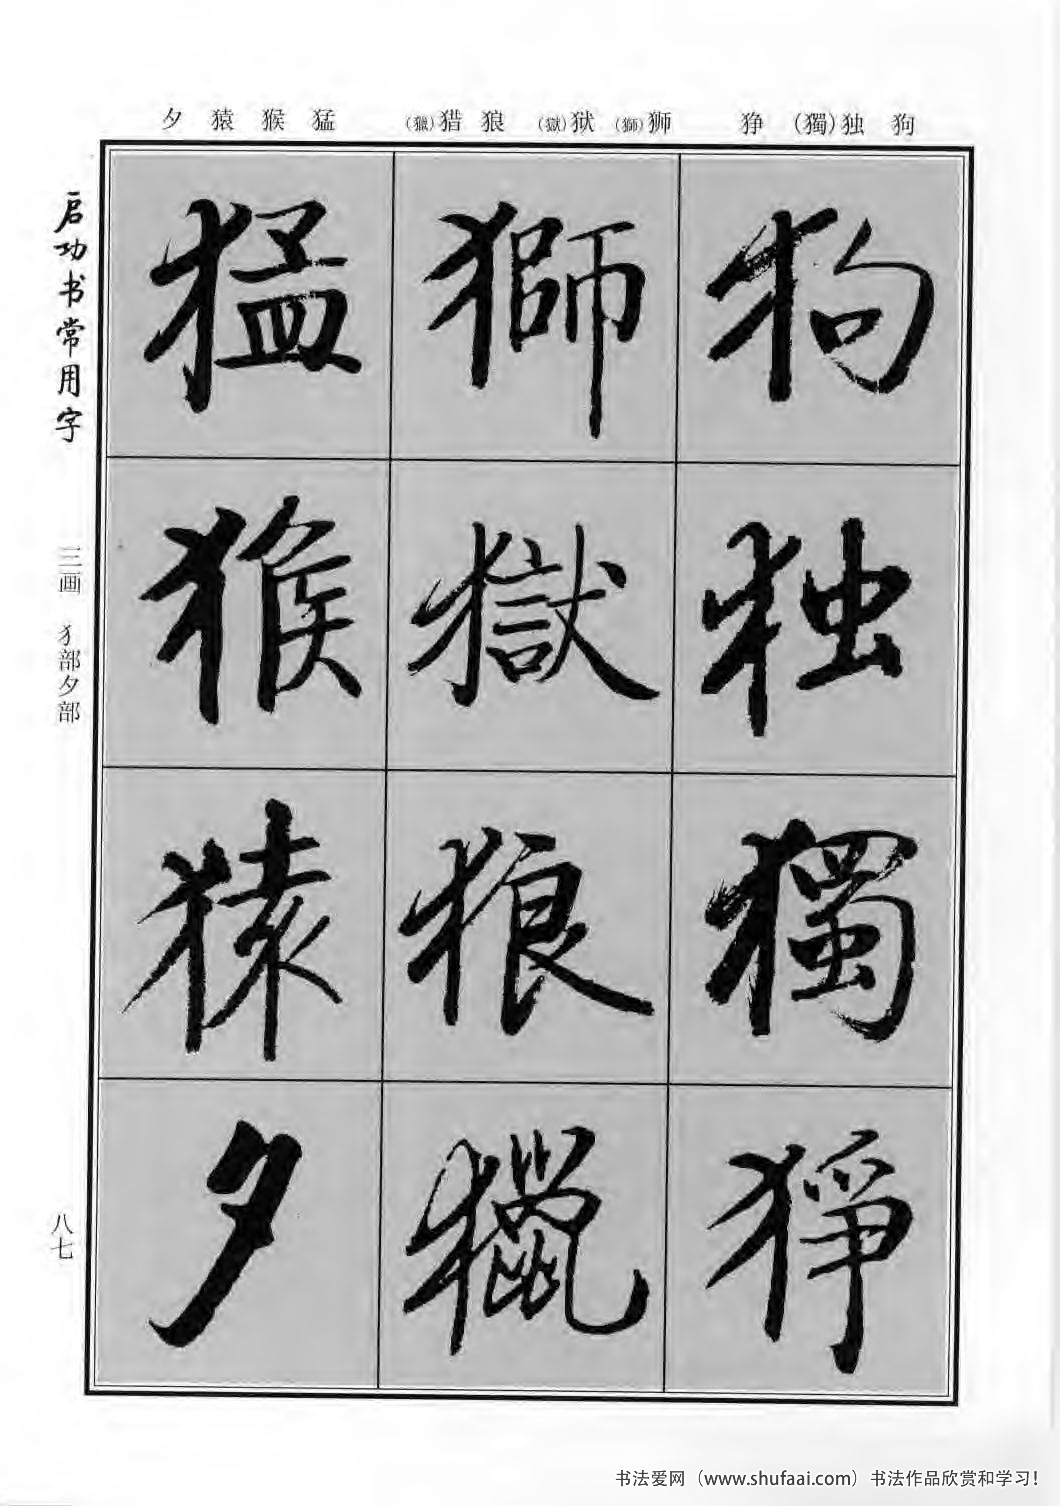 夕 猿 猴 猛 (獵)猎 狼 (獄)狱 (獅)狮 狰 (獨)独 狗
狗
独
獨
狰
獅
獄
狼
獵
猛
猴
猿
夕
启功书常用字
三画 犭部夕部
八七
书法爱网（www.shufaai.com）书法作品欣赏和学习！